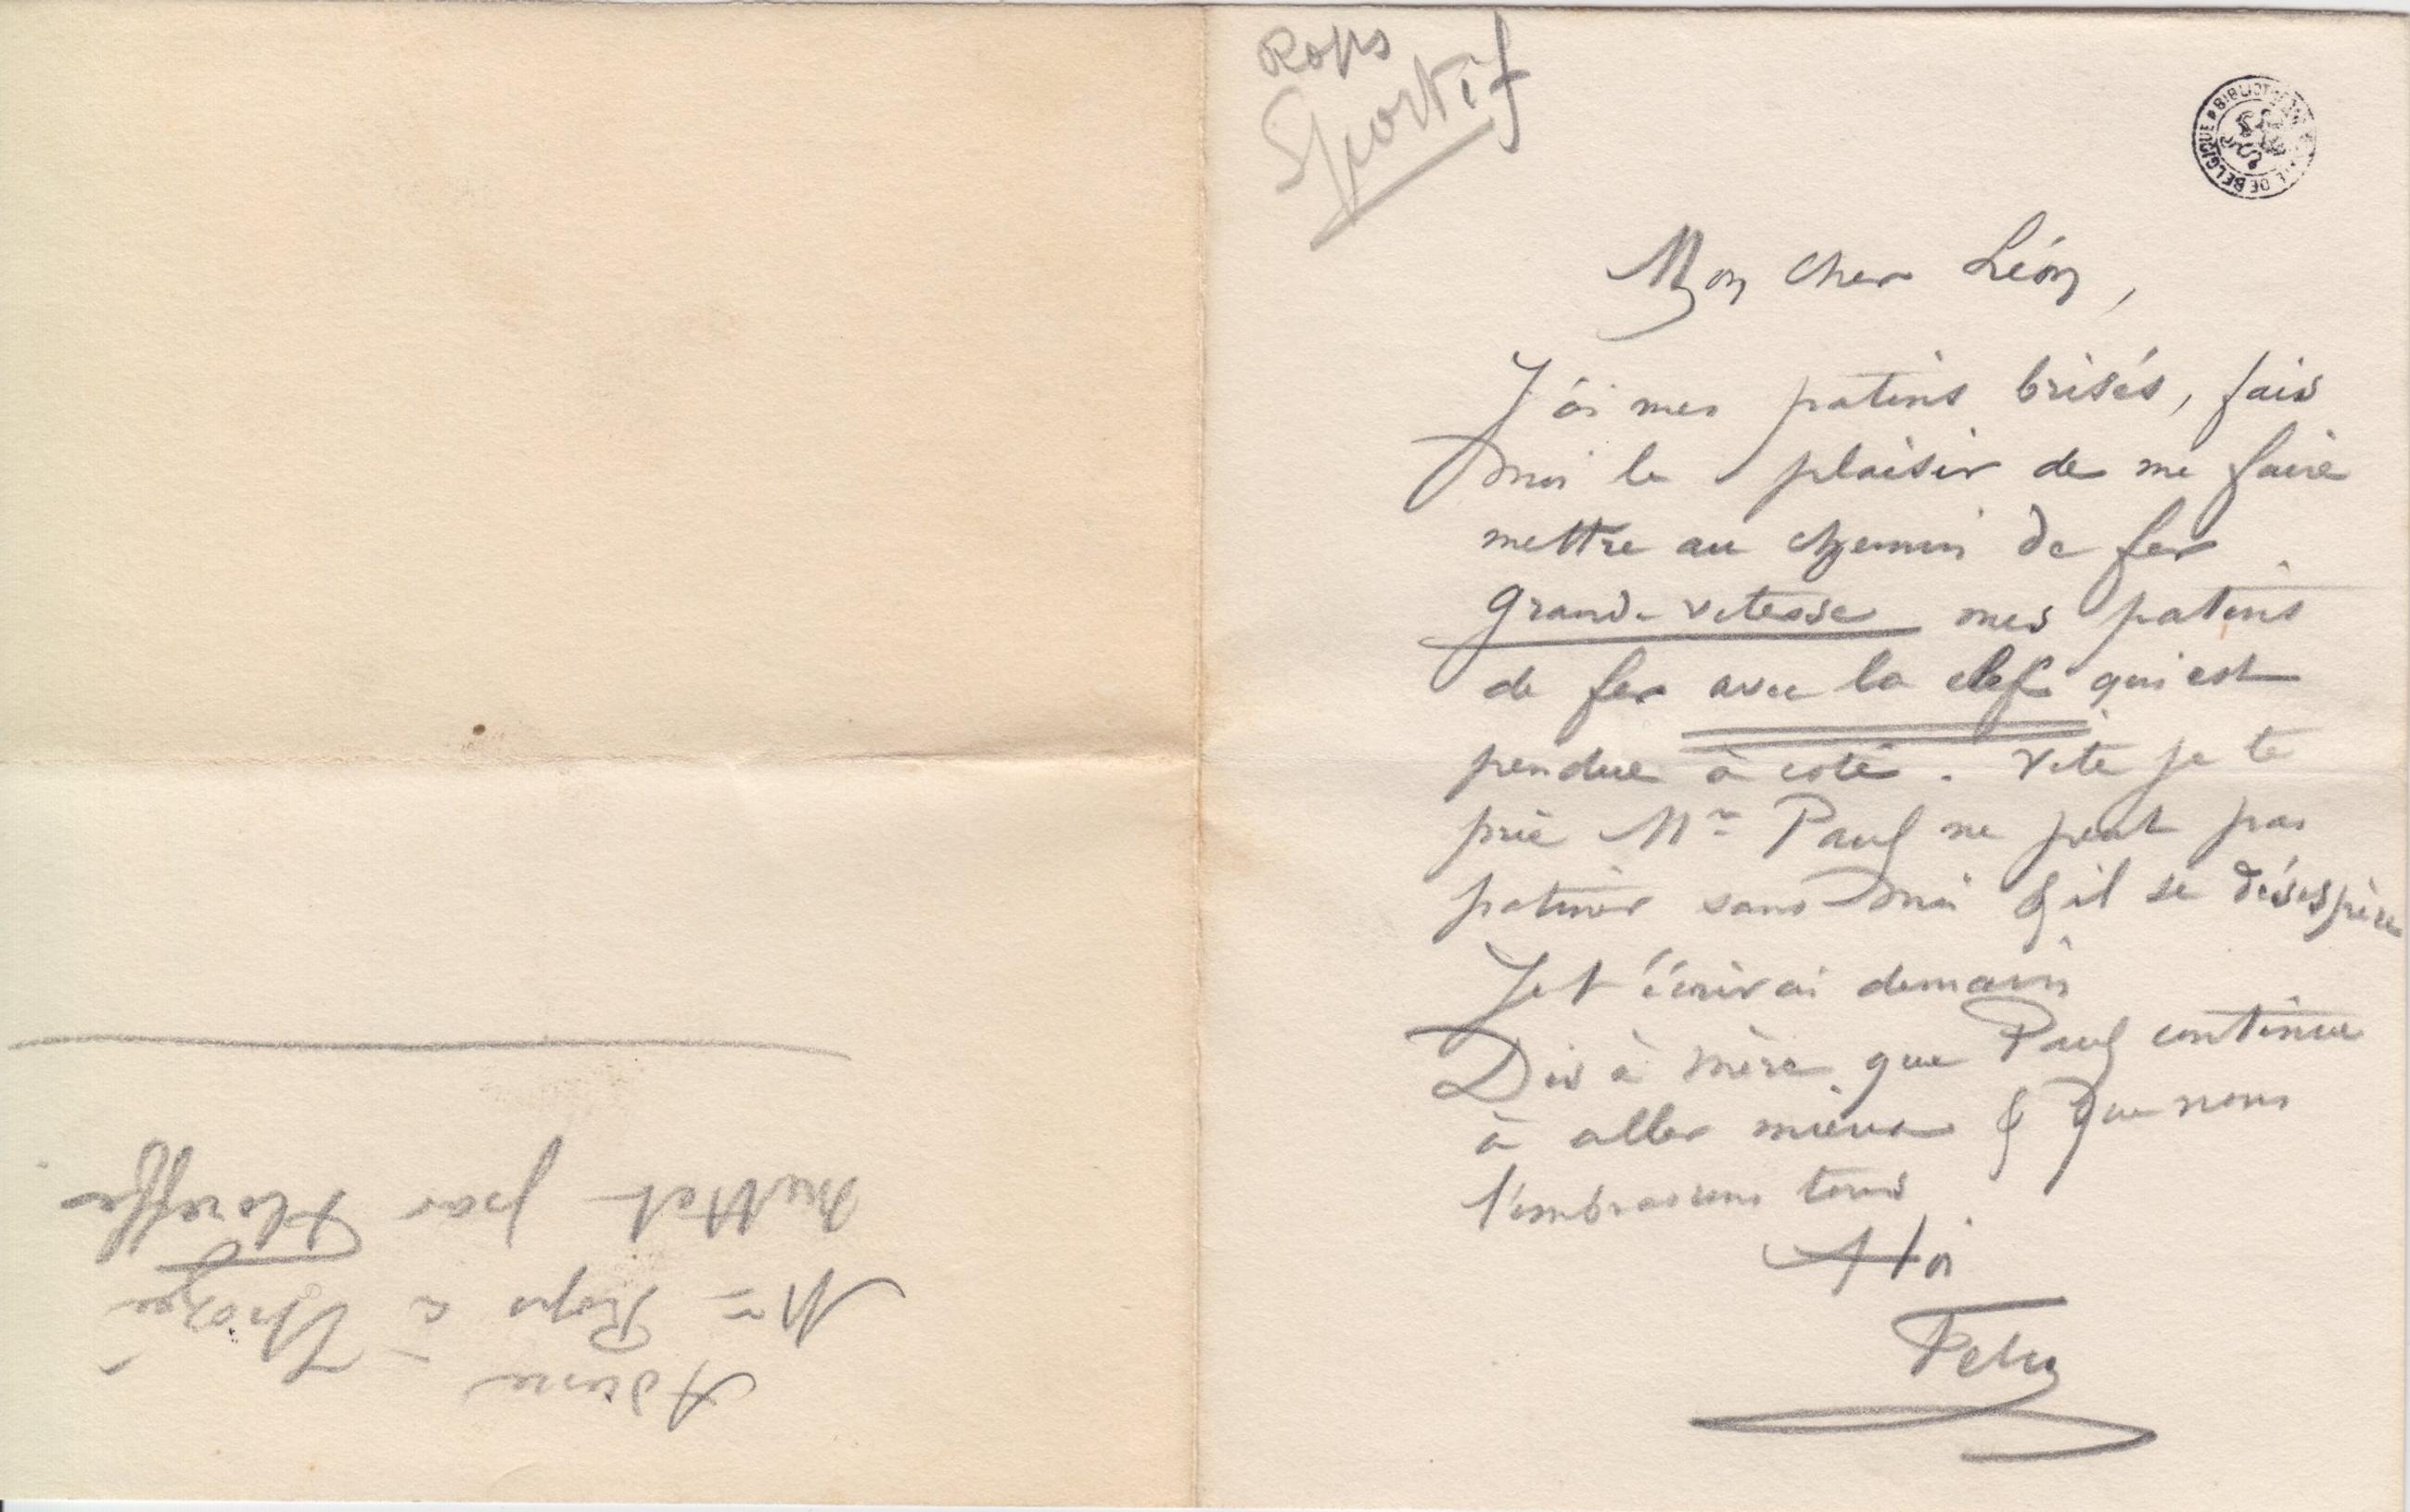 Rops
Sportif
BIBLIOTHE DE BELGIQUE
Mon cher Léon,
J'ai mes patins brisés, fais
moi le plaisir de me faire
mettre au chemin de fer
grande vitesse mes patins
de fer avec la clef qui est
pendue à coté. Vite je te
prie Mr Paul ne peut pas
patiner sans moi & il se désespère
Je t'écrirai demain
Dis à mère que Paul continue
à aller mieux & que nous
l'embrassons tous
A toi
Fely
Adresse
Mr Rops à Thozée
Mettet par Floreffe